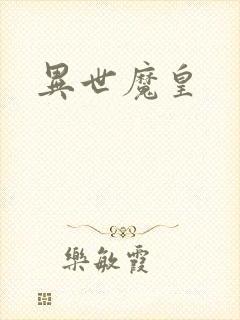 異世魔皇
樂敏霞